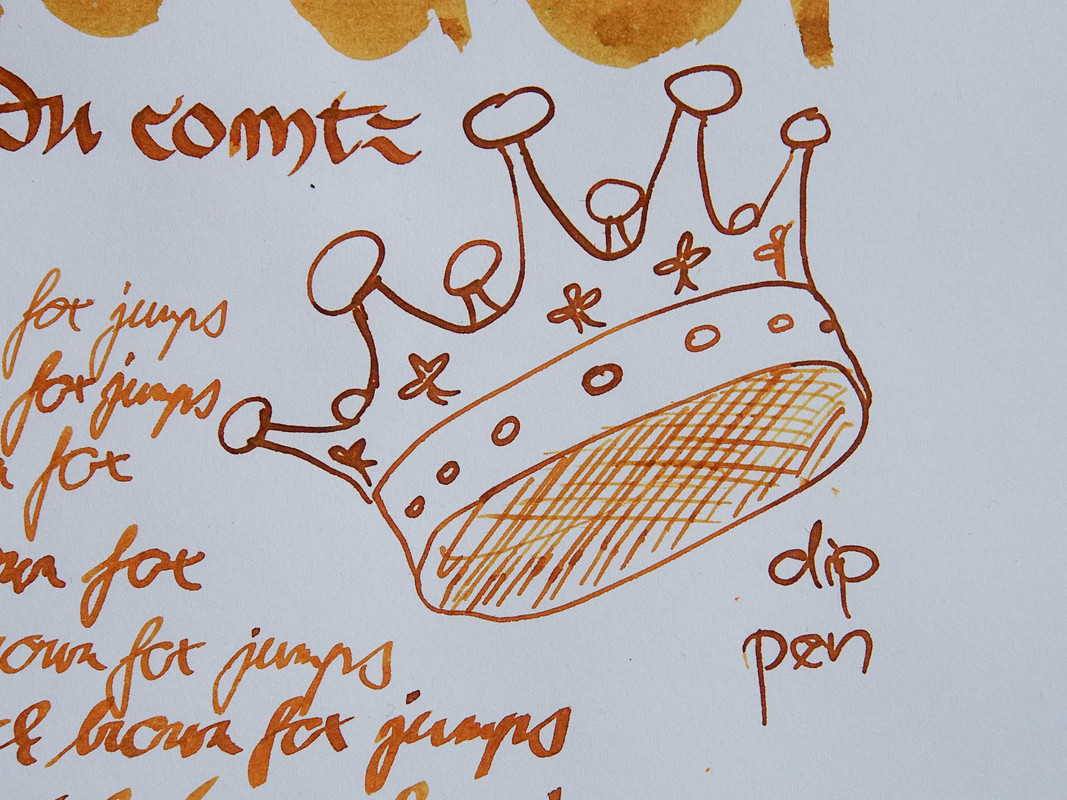 du comte
fox jumps
fox jumps
fox
fox
brown fox jumps
brown fox jumps
dip
pen